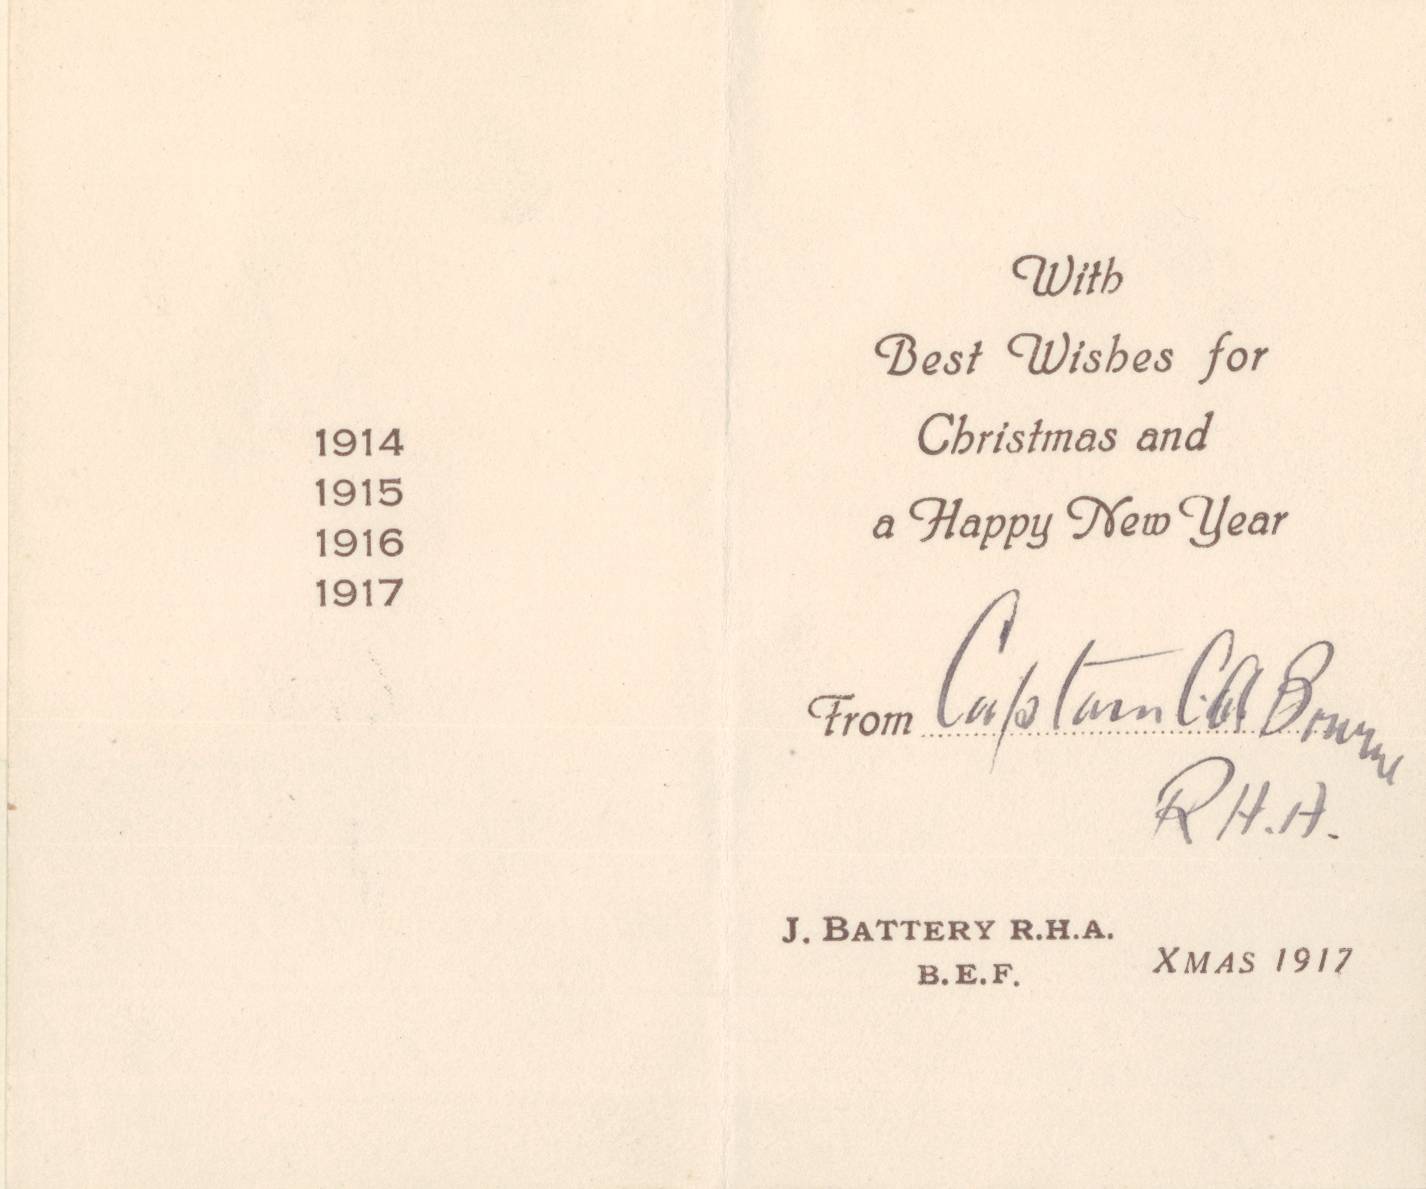 1914
1915
1916
1917
With
Best Wishes for
Christmas and
a Happy New Year
From Captain C.A Bourne
R.H.A.
J. BATTERY R.H.A.
B.E.F.
XMAS 1917